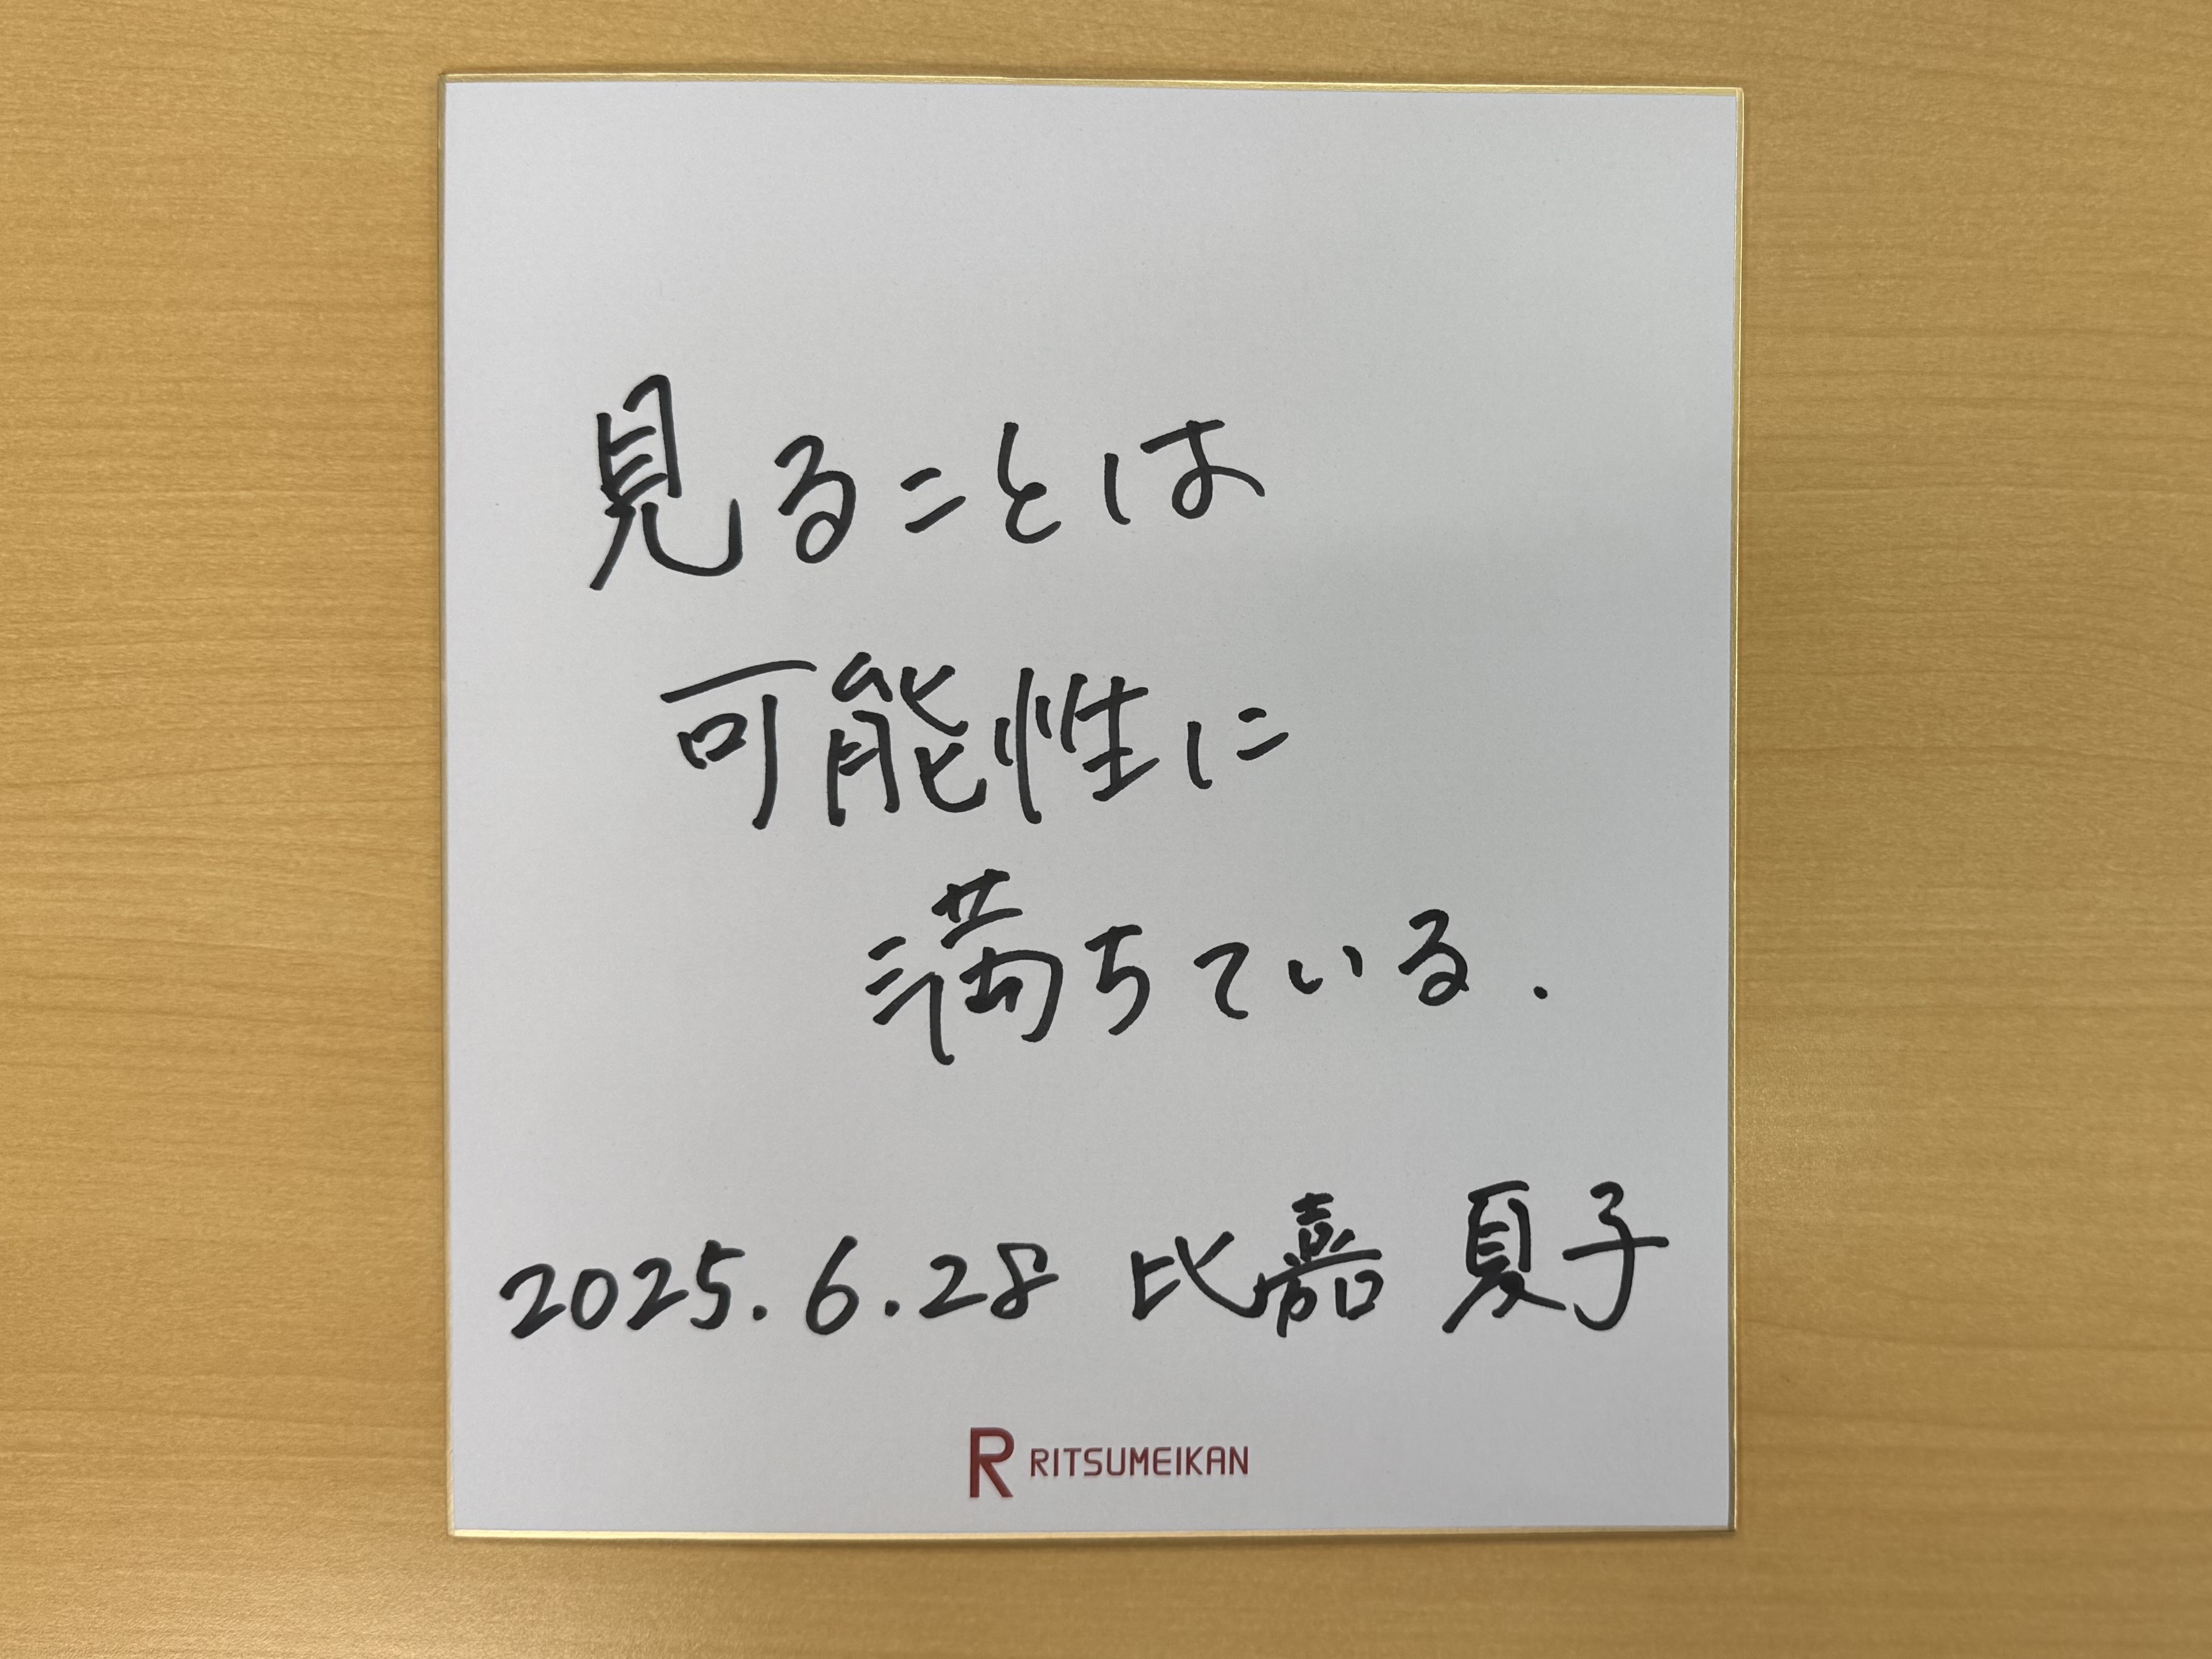 見ることは
可能性に
満ちている.
2025.6.28 比嘉 夏子
R RITSUMEIKAN